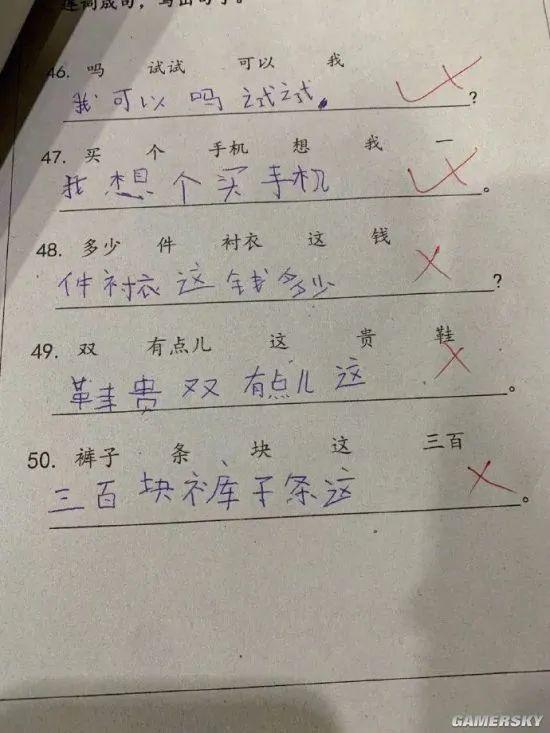 连词成句，写出句子。
46. 吗 试试 可以 我
我 可以 吗 试试。?
47. 买 个 手机 想 我 一
我 想 个 买 手机 。
48. 多少 件 衬衣 这 钱
件 衬衣 这 钱 多少 ?
49. 双 有点儿 这 贵 鞋
鞋 贵 双 有点儿 这 。
50. 裤子 条 块 这 三百
三百 块 裤子 条 这 。
GAMERSKY